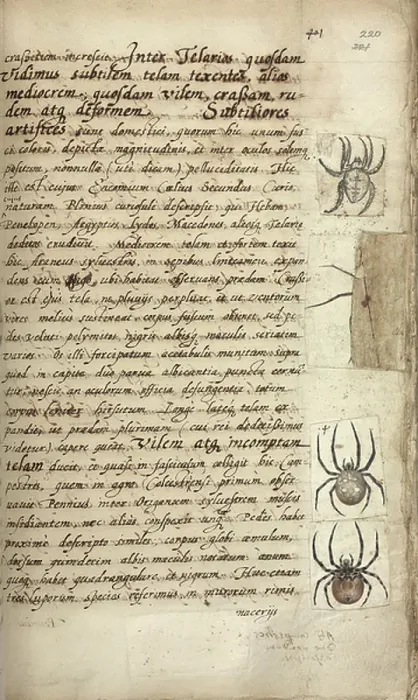 441 220
crassitiem increscit. Inter Telarios quosdam
vidimus subtilem telam texentes, alios
mediocrem; quosdam vilem, craßam, ru-
dem atq deformem. Subtiliores
artifices sunt domestici, quorum hic unum fus
ci coloris, depictæ magnitudinis, et inter oculos
positum, nonnullæ (uti dicam) pelluciditatis. Hic
ille est cujus Encomium Cælius Secundus Curio,
naturam Plinius curiose descripsit, qui Hebræ
Penelopen, Ægyptios, Lydos, Macedones, aliosq Telariæ
deditos erudivit. Mediocrem telam texit
hic araneus sylvestris, in sepibus linteamen expan
dens ubi habitat observans prædam. Craßi
or est ejus tela, ne pluvijs perplutat, et ut ventorum
vires melius sustineat. corpus fuscum obtinet, sed pe
des veluti polymitos, nigris albisq maculis seriatim
varios. Os illi forcipatum acetabulis munitum, supra
quod in capite duo parva albicantia puncta cernū
tur, nescio an oculorum officia defungentia, totum
corpus hirsutum. Longe lateq telam ex
pandit, ut prædam plurimam (cui rei deditissimus
videtur) capere queat. Vilem atq incomptam
telam ducit, et quasi in fasciculum colligit hic Cam
pestris, quem in agro Colcestrensi primum obser
vavit Pennius inter Origanum sylvestrem muscis
insidiantem, nec alias conspexit unq. Pedes habet
proximè descripto similes, corpus globi æmulum,
dorsum quindecim albis maculis notatum. anum
quoq habet quadrangulare, et nigrum. Huc etiam
tres Luporum species referimus in murorum rimis
nacerijs